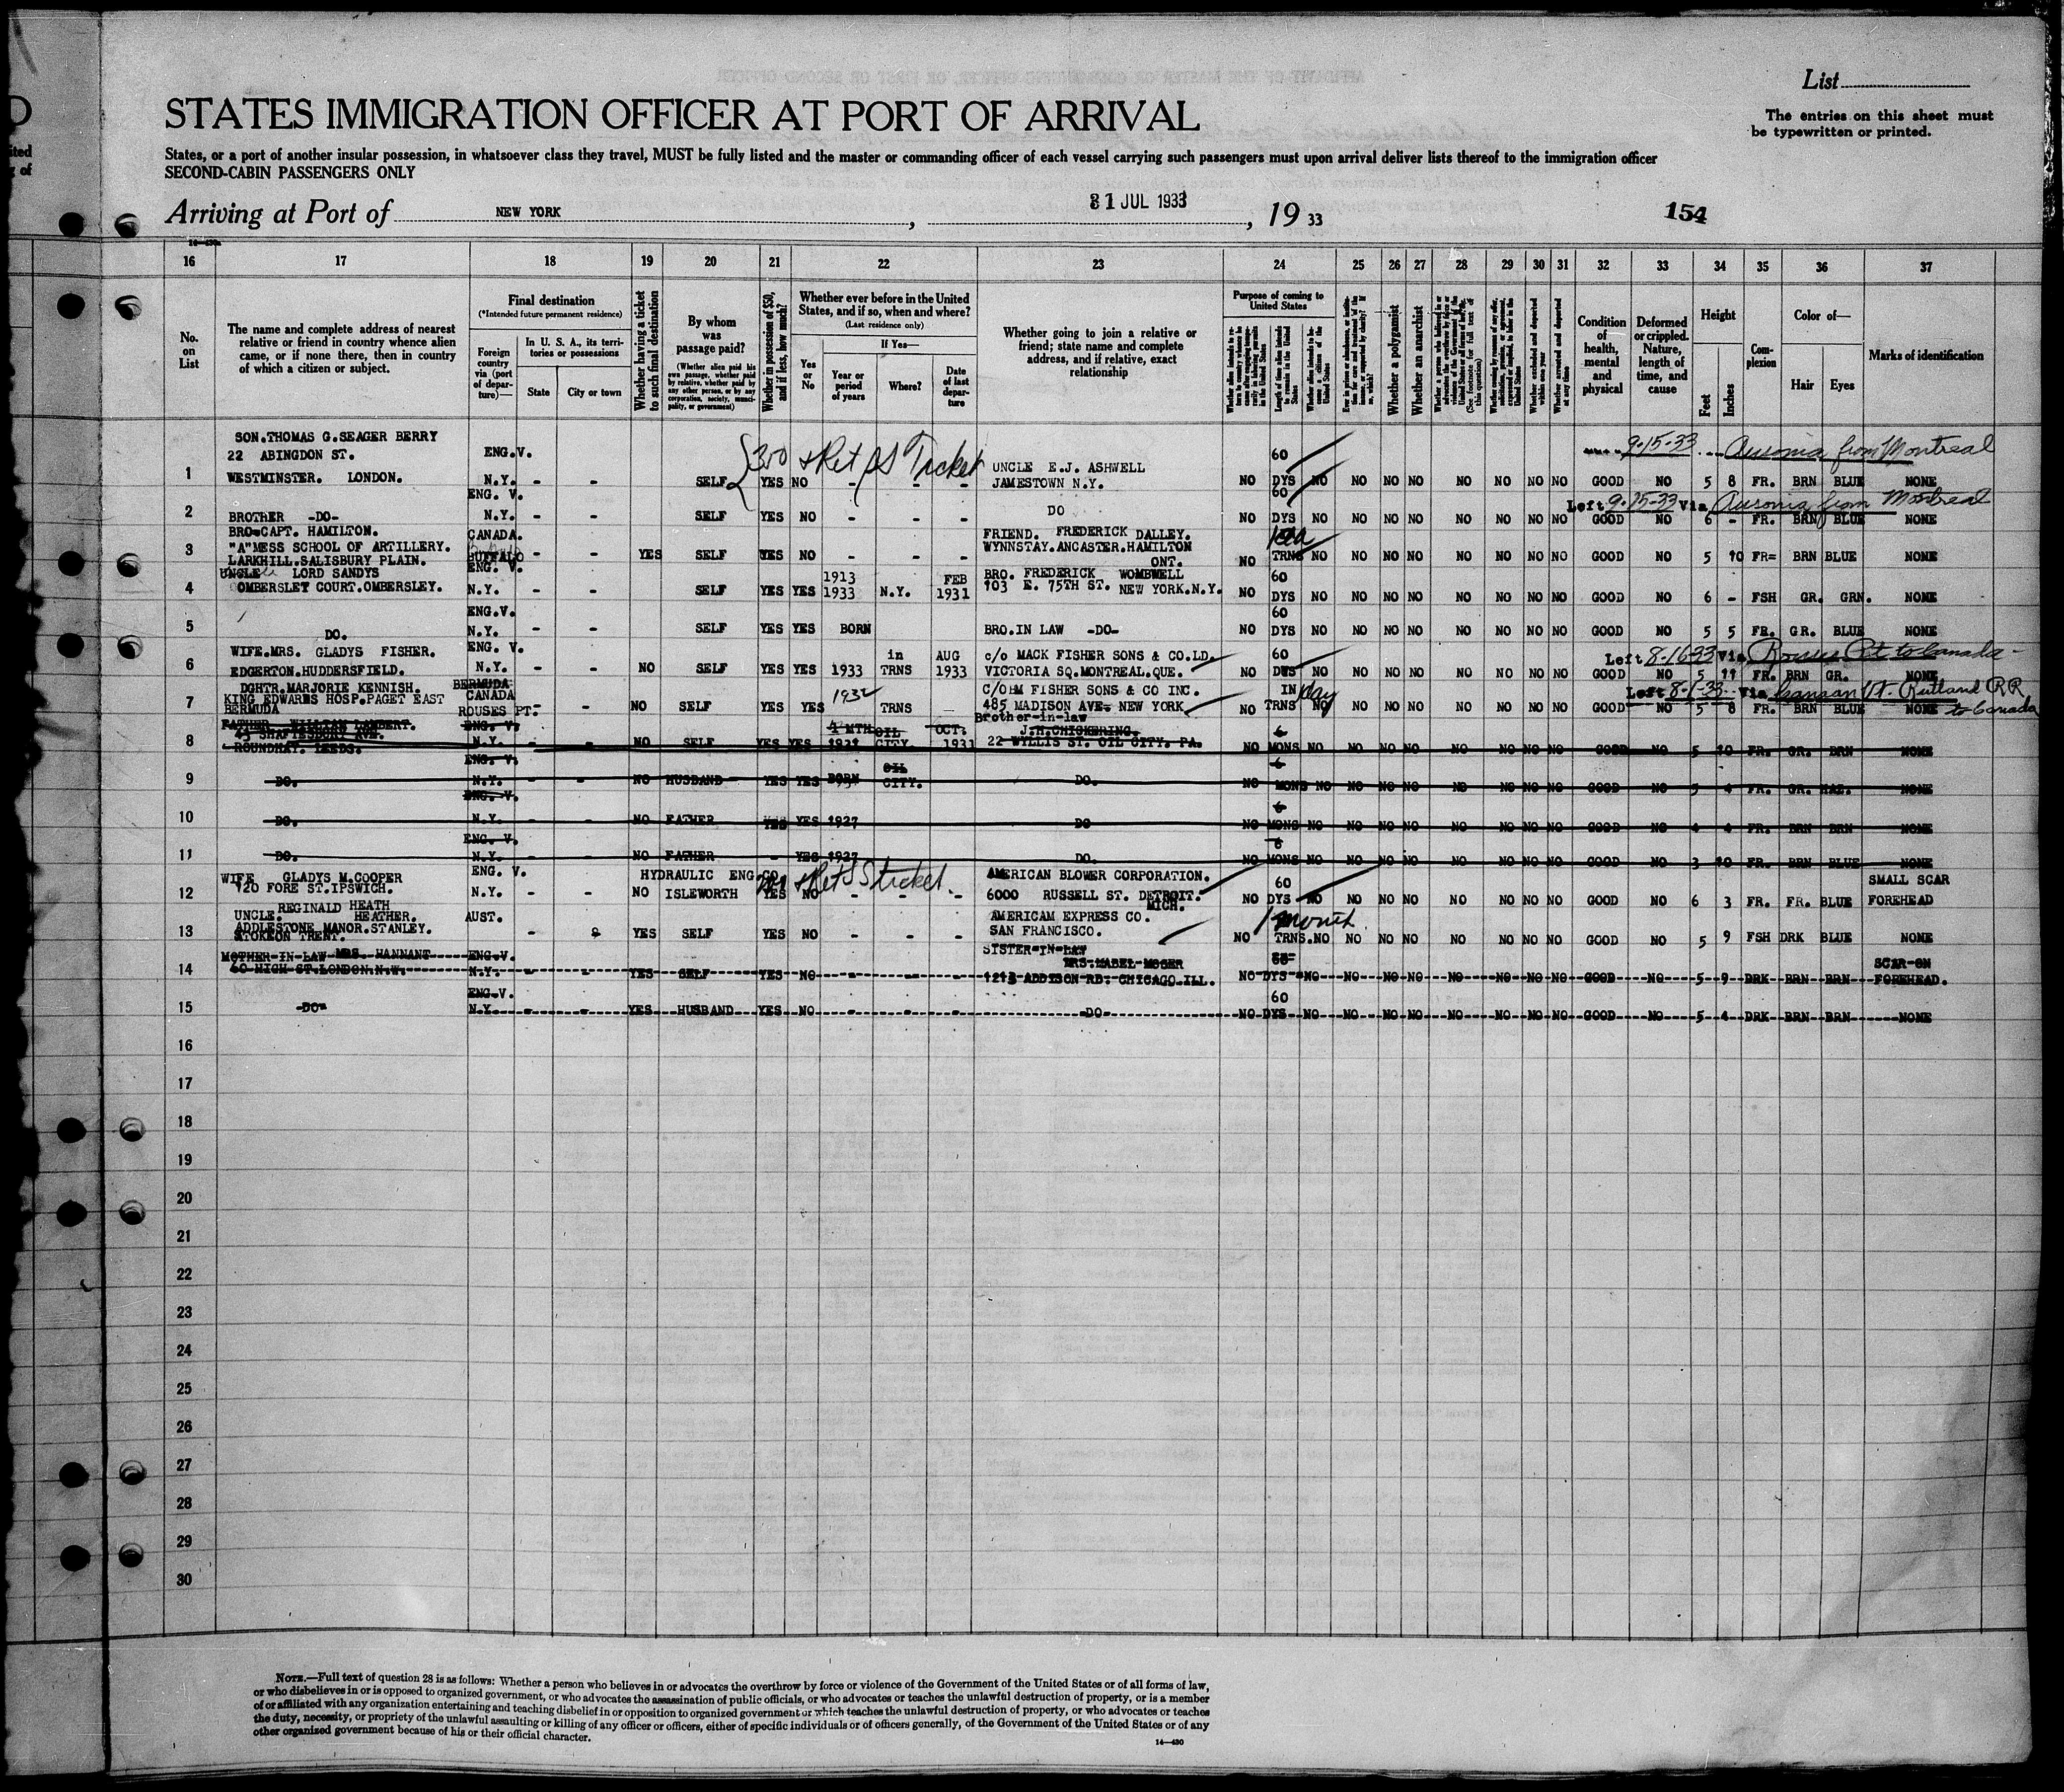 List
STATES IMMIGRATION OFFICER AT PORT OF ARRIVAL
The entries on this sheet must
be typewritten or printed.
States, or a port of another insular possession, in whatsoever class they travel, MUST be fully listed and the master or commanding officer of each vessel carrying such passengers must upon arrival deliver lists thereof to the immigration officer
SECOND-CABIN PASSENGERS ONLY
Arriving at Port of NEW YORK, 31 JUL 1933, 19 33
154
16 17 18 19 20 21 22 23 24 25 26 27 28 29 30 31 32 33 34 35 36 37
No. on List
The name and complete address of nearest relative or friend in country whence alien came, or if none there, then in country of which a citizen or subject.
Final destination
(*Intended future permanent residence)
Foreign country via (port of departure)—
In U. S. A., its territories or possessions
State
City or town
Whether having a ticket to such final destination
By whom was passage paid?
(Whether alien paid his own passage, whether paid by relative, whether paid by any other person, or by any corporation, society, municipality, or government)
Whether in possession of $50, and if less, how much?
Whether ever before in the United States, and if so, when and where?
(Last residence only)
Yes or No
If Yes—
Year or period of years
Where?
Date of last departure
Whether going to join a relative or friend; state name and complete address, and if relative, exact relationship
Purpose of coming to United States
Whether a polygamist
Whether an anarchist
Condition of health, mental and physical
Deformed or crippled. Nature, length of time, and cause
Height
Feet
Inches
Complexion
Color of—
Hair
Eyes
Marks of identification
SON.THOMAS G.SEAGER BERRY
22 ABINGDON ST. ENG.V. $300 + Ret SS Ticket UNCLE E.J. ASHWELL 60 9-15-33 Ausonia from Montreal
1 WESTMINSTER. LONDON. N.Y. - - SELF YES NO - - - JAMESTOWN N.Y. NO DYS NO NO NO NO NO NO NO NO GOOD NO 5 8 FR. BRN BLUE NONE
ENG. V. DO 60 Left 9-15-33 Via Ausonia from Montreal
2 BROTHER -DO- N.Y. - - SELF YES NO - - - NO DYS NO NO NO NO NO NO NO NO GOOD NO 6 - FR. BRN BLUE NONE
BRO-CAPT. HAMILTON. CANADA. FRIEND. FREDERICK DALLEY.
3 "A"MESS SCHOOL OF ARTILLERY. BUFFALO - - YES SELF YES NO - - - WYNNSTAY.ANCASTER.HAMILTON NO TRNS NO NO NO NO NO NO NO NO GOOD NO 5 10 FR= BRN BLUE NONE
LARKHILL.SALISBURY PLAIN. ONT.
UNCLE LORD SANDYS ENG. V. 1913 FEB BRO. FREDERICK WOMBWELL 60
4 OMBERSLET COURT.OMBERSLEY. N.Y. - - SELF YES YES 1933 N.Y. 1931 103 E. 75TH ST. NEW YORK.N.Y. NO DYS NO NO NO NO NO NO NO NO GOOD NO 6 - FSH GR. GRN. NONE
ENG.V. 60
5 DO. N.Y. - - SELF YES YES BORN BRO.IN LAW -DO- NO DYS NO NO NO NO NO NO NO NO GOOD NO 5 5 FR. GR. BLUE NONE
WIFE.MRS. GLADYS FISHER. ENG. V. in AUG c/o MACK FISHER SONS & CO.LD. 60 Left 8-16-33 Via Rouses Pt to Canada
6 EDGERTON.HUDDERSFIELD. N.Y. - - NO SELF YES YES 1933 TRNS 1933 VICTORIA SQ.MONTREAL.QUE. NO DYS NO NO NO NO NO NO NO NO GOOD NO 5 11 FR. BRN GR. NONE
DGHTR.MARJORIE KENNISH. BERMUDA 1932 C/O HM FISHER SONS & CO INC. IN 1 day Left 8-1-33 Via Canaan Vt. Rutland RR to Canada
7 KING EDWARDS HOSP.PAGET EAST CANADA - - NO SELF YES TRNS - 485 MADISON AVE. NEW YORK NO TRNS NO NO NO NO NO NO NO NO GOOD NO 5 8 FR. BRN BLUE NONE
BERMUDA ROUSES PT.
FATHER WILLIAM LAMBERT. ENG. V. 1 MTH OIL OCT. Brother-in-law J.H.CHICKERING. 6
8 45 SHAFTESBURY AVE. N.Y. - - NO SELF YES YES 1931 CITY 1931 22 WYLLIS ST. OIL CITY. PA. NO MONS NO NO NO NO NO NO NO NO GOOD NO 5 10 FR. GR. BRN NONE
ROUNDHAY. LEEDS.
ENG. V. OIL 6
9 DO. N.Y. - - NO HUSBAND YES YES BORN CITY. DO. NO MONS NO NO NO NO NO NO NO NO GOOD NO 5 4 FR. GR. HAZ. NONE
ENG. V. 6
10 DO. N.Y. - - NO FATHER YES YES 1927 DO NO MONS NO NO NO NO NO NO NO NO GOOD NO 4 4 FR. BRN BRN NONE
ENG. V. 6
11 DO. N.Y. - - NO FATHER - YES 1927 DO. NO MONS NO NO NO NO NO NO NO NO GOOD NO 3 10 FR. BRN BLUE NONE
WIFE GLADYS M.COOPER ENG. V. HYDRAULIC ENG CO. + Ret SS ticket. AMERICAN BLOWER CORPORATION. 60 SMALL SCAR
12 120 FORE ST.IPSWICH. N.Y. - - NO ISLEWORTH YES NO - - - 6000 RUSSELL ST. DETROIT. MICH. NO DYS NO NO NO NO NO NO NO NO GOOD NO 6 3 FR. FR. BLUE FOREHEAD
REGINALD HEATH
UNCLE. HEATHER. AUST. AMERICAM EXPRESS CO. 1 month
13 ADDLESTONE MANOR.STANLEY. - YES SELF YES NO - - - SAN FRANCISCO. NO TRNS. NO NO NO NO NO NO NO NO GOOD NO 5 9 FSH DRK BLUE NONE
STOKEON TRENT.
MOTHER-IN-LAW MRS. HANNANT ENG.V. SISTER-IN-LAW MRS.MABEL MOSER 60 SCAR ON
14 60 HIGH ST.LONDON.N.W. N.Y. - - YES SELF YES NO - - - 1213 ADDISON RD. CHICAGO.ILL. NO DYS NO NO NO NO NO NO NO NO GOOD NO 5 9 DRK BRN BRN FOREHEAD.
ENG.V. 60
15 -DO- N.Y. - - YES HUSBAND YES NO - - - -DO- NO DYS NO NO NO NO NO NO NO NO GOOD NO 5 4 DRK BRN BRN NONE
16
17
18
19
20
21
22
23
24
25
26
27
28
29
30
NOTE.—Full text of question 28 is as follows: Whether a person who believes in or advocates the overthrow by force or violence of the Government of the United States or of all forms of law,
or who disbelieves in or is opposed to organized government, or who advocates the assassination of public officials, or who advocates or teaches the unlawful destruction of property, or is a member
of or affiliated with any organization entertaining and teaching disbelief in or opposition to organized government or which teaches the unlawful destruction of property, or who advocates or teaches
the duty, necessity, or propriety of the unlawful assaulting or killing of any officer or officers, either of specific individuals or of officers generally, of the Government of the United States or of any
other organized government because of his or their official character.
14—430